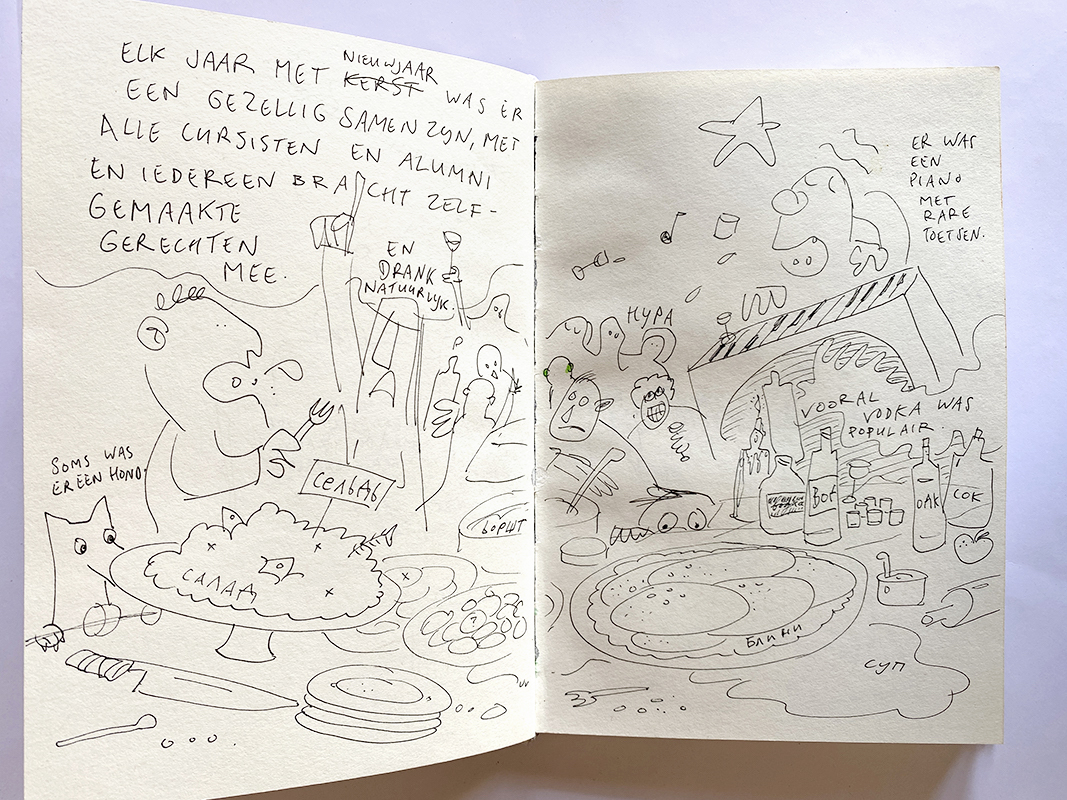 ELK JAAR MET NIEUWJAAR KERST WAS ER
EEN GEZELLIG SAMENZIJN, MET
ALLE CURSISTEN EN ALUMNI
EN IEDEREEN BRACHT ZELF-
GEMAAKTE
GERECHTEN
MEE.
EN
DRANK
NATUURLIJK.
SOMS WAS
ER EEN HOND.
СЕЛЬДЬ
БОРШТ
САЛАД
ER WAS
EEN
PIANO
MET
RARE
TOETSEN.
НУРА
VOORAL
VODKA WAS
POPULAIR.
ОАК
СОК
БЛИНИ
СУП